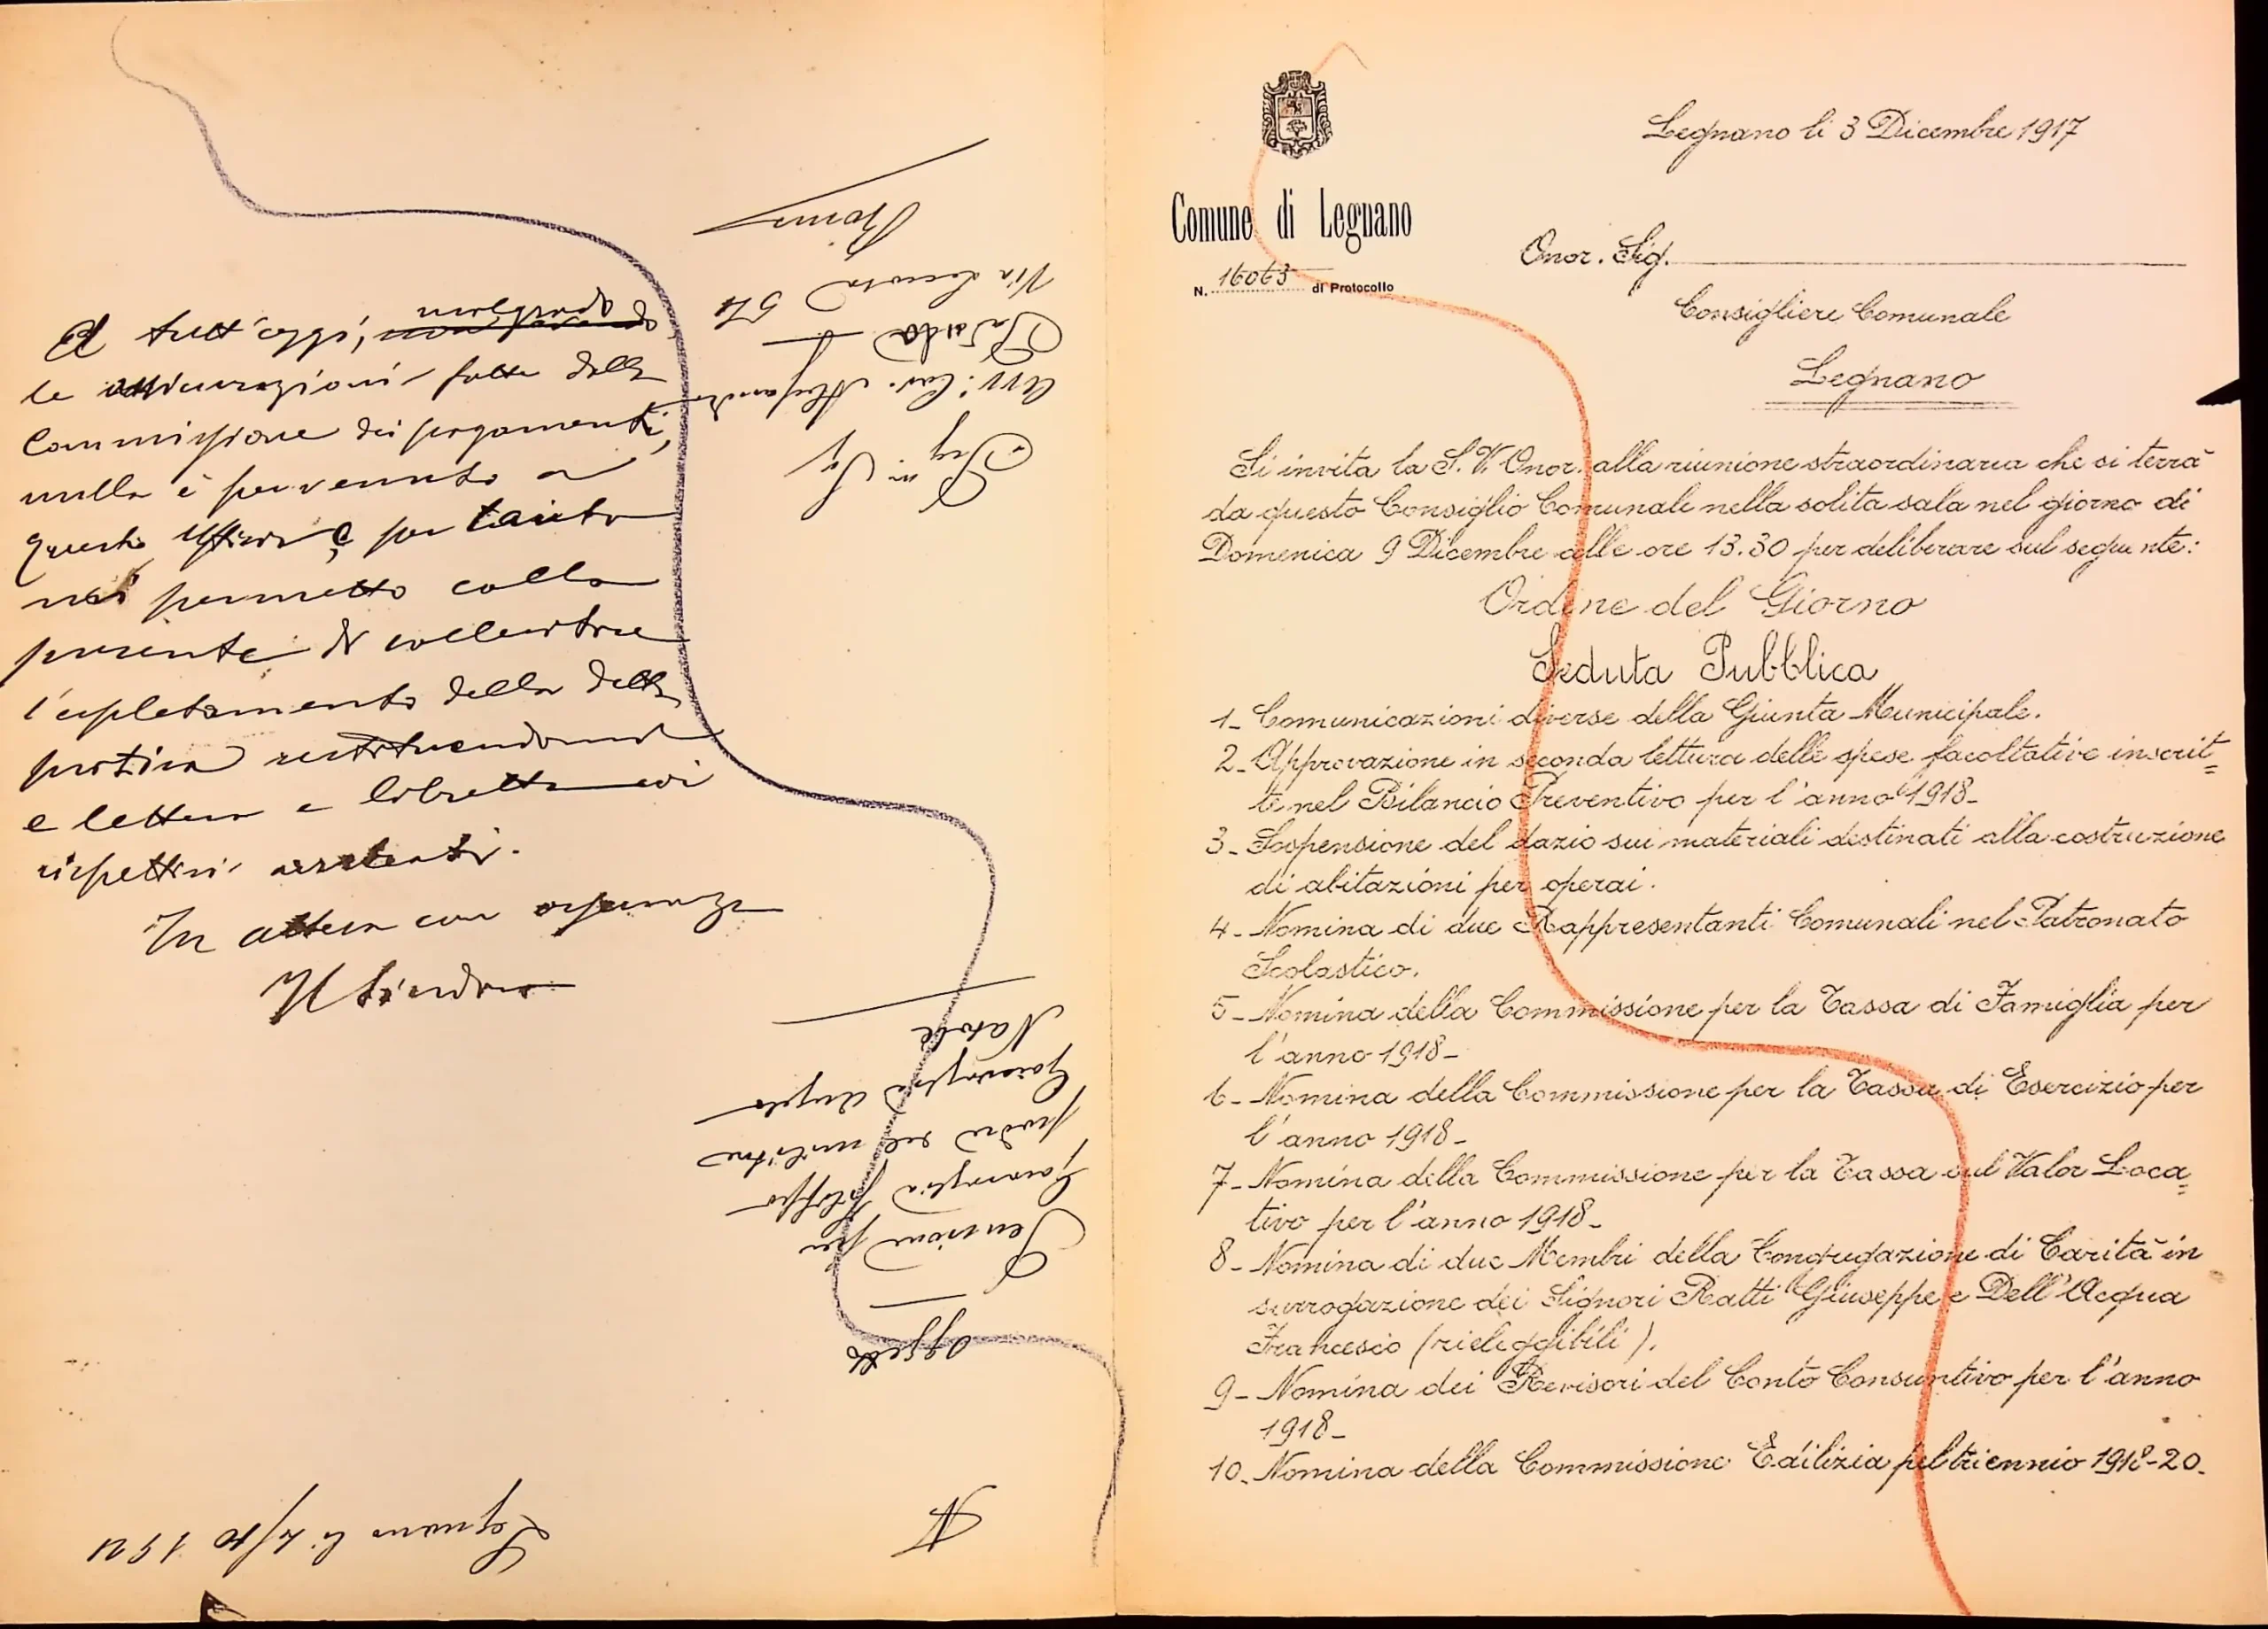 A tutt'oggi, malgrado
le assicurazioni fatte dalla
Commissione dei pagamenti,
nulla è pervenuto a
questo Ufficio e per tanto
mi permetto colla
presente di sollecitare
l'espletamento della detta
pratica restituendomi
e lettera e libretto coi
rispettivi
In attesa con osservanza
Il Sindaco
Legnano li 4/10 1921
N.
Oggetto
Pensione per
Garavaglia Filippo
padre del militare
Garavaglia Angelo
Natale
Sig
Avv. Cav. Alessandro
Via 54
Roma
Comune di Legnano
N. 16063 di Protocollo
Legnano li 3 Dicembre 1917
Onor. Sig.
Consigliere Comunale
Legnano
Si invita la S.V. Onor. alla riunione straordinaria che si terrà
da questo Consiglio Comunale nella solita sala nel giorno di
Domenica 9 Dicembre alle ore 13.30 per deliberare sul seguente:
Ordine del Giorno
Seduta Pubblica
1- Comunicazioni diverse della Giunta Municipale.
2- Approvazione in seconda lettura delle spese facoltative inscrit=
te nel Bilancio Preventivo per l'anno 1918-
3- Sospensione del dazio sui materiali destinati alla costruzione
di abitazioni per operai.
4- Nomina di due Rappresentanti Comunali nel Patronato
Scolastico.
5- Nomina della Commissione per la Tassa di Famiglia per
l'anno 1918-
6- Nomina della Commissione per la Tassa di Esercizio per
l'anno 1918-
7- Nomina della Commissione per la Tassa sul Valor Loca=
tivo per l'anno 1918-
8- Nomina di due Membri della Congregazione di Carità in
surrogazione dei Signori Ratti Giuseppe e Dell'Acqua
Francesco (rieleggibili).
9- Nomina dei Revisori del Conto Consuntivo per l'anno
1918-
10- Nomina della Commissione Edilizia pel triennio 1918-20-